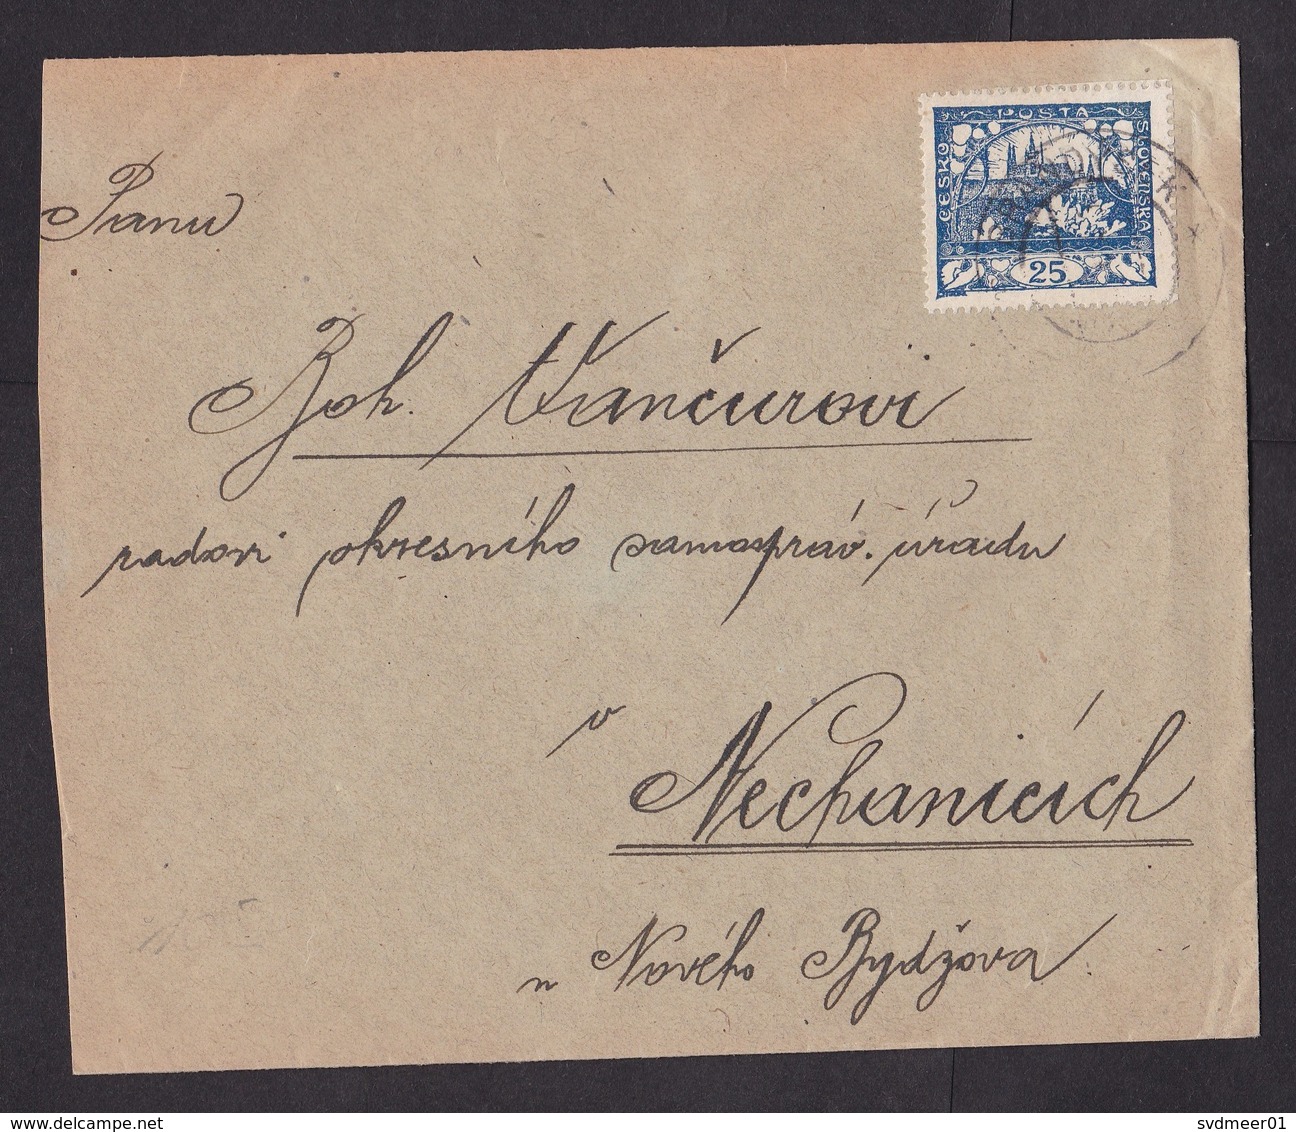 POSTA
ČESKO
SLOVENSKA
25
Panu
Boh. Vančurovi
radovi okresního samospráv. úřadu
v
Nechanicích
u Nového Bydžova
svdmeer01